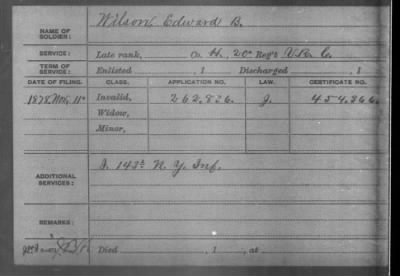 NAME OF SOLDIER: Wilson, Edward B.
SERVICE: Late rank, Co. H, 20th Reg't V.R.C.
TERM OF SERVICE: Enlisted , 1 Discharged , 1
DATE OF FILING. CLASS. APPLICATION NO. LAW. CERTIFICATE NO.
1878, Nov, 11th Invalid, 262.826. J. 454.366.
Widow,
Minor,
ADDITIONAL SERVICES: I. 143d N.Y. Inf.
REMARKS:
Died , 1 , at